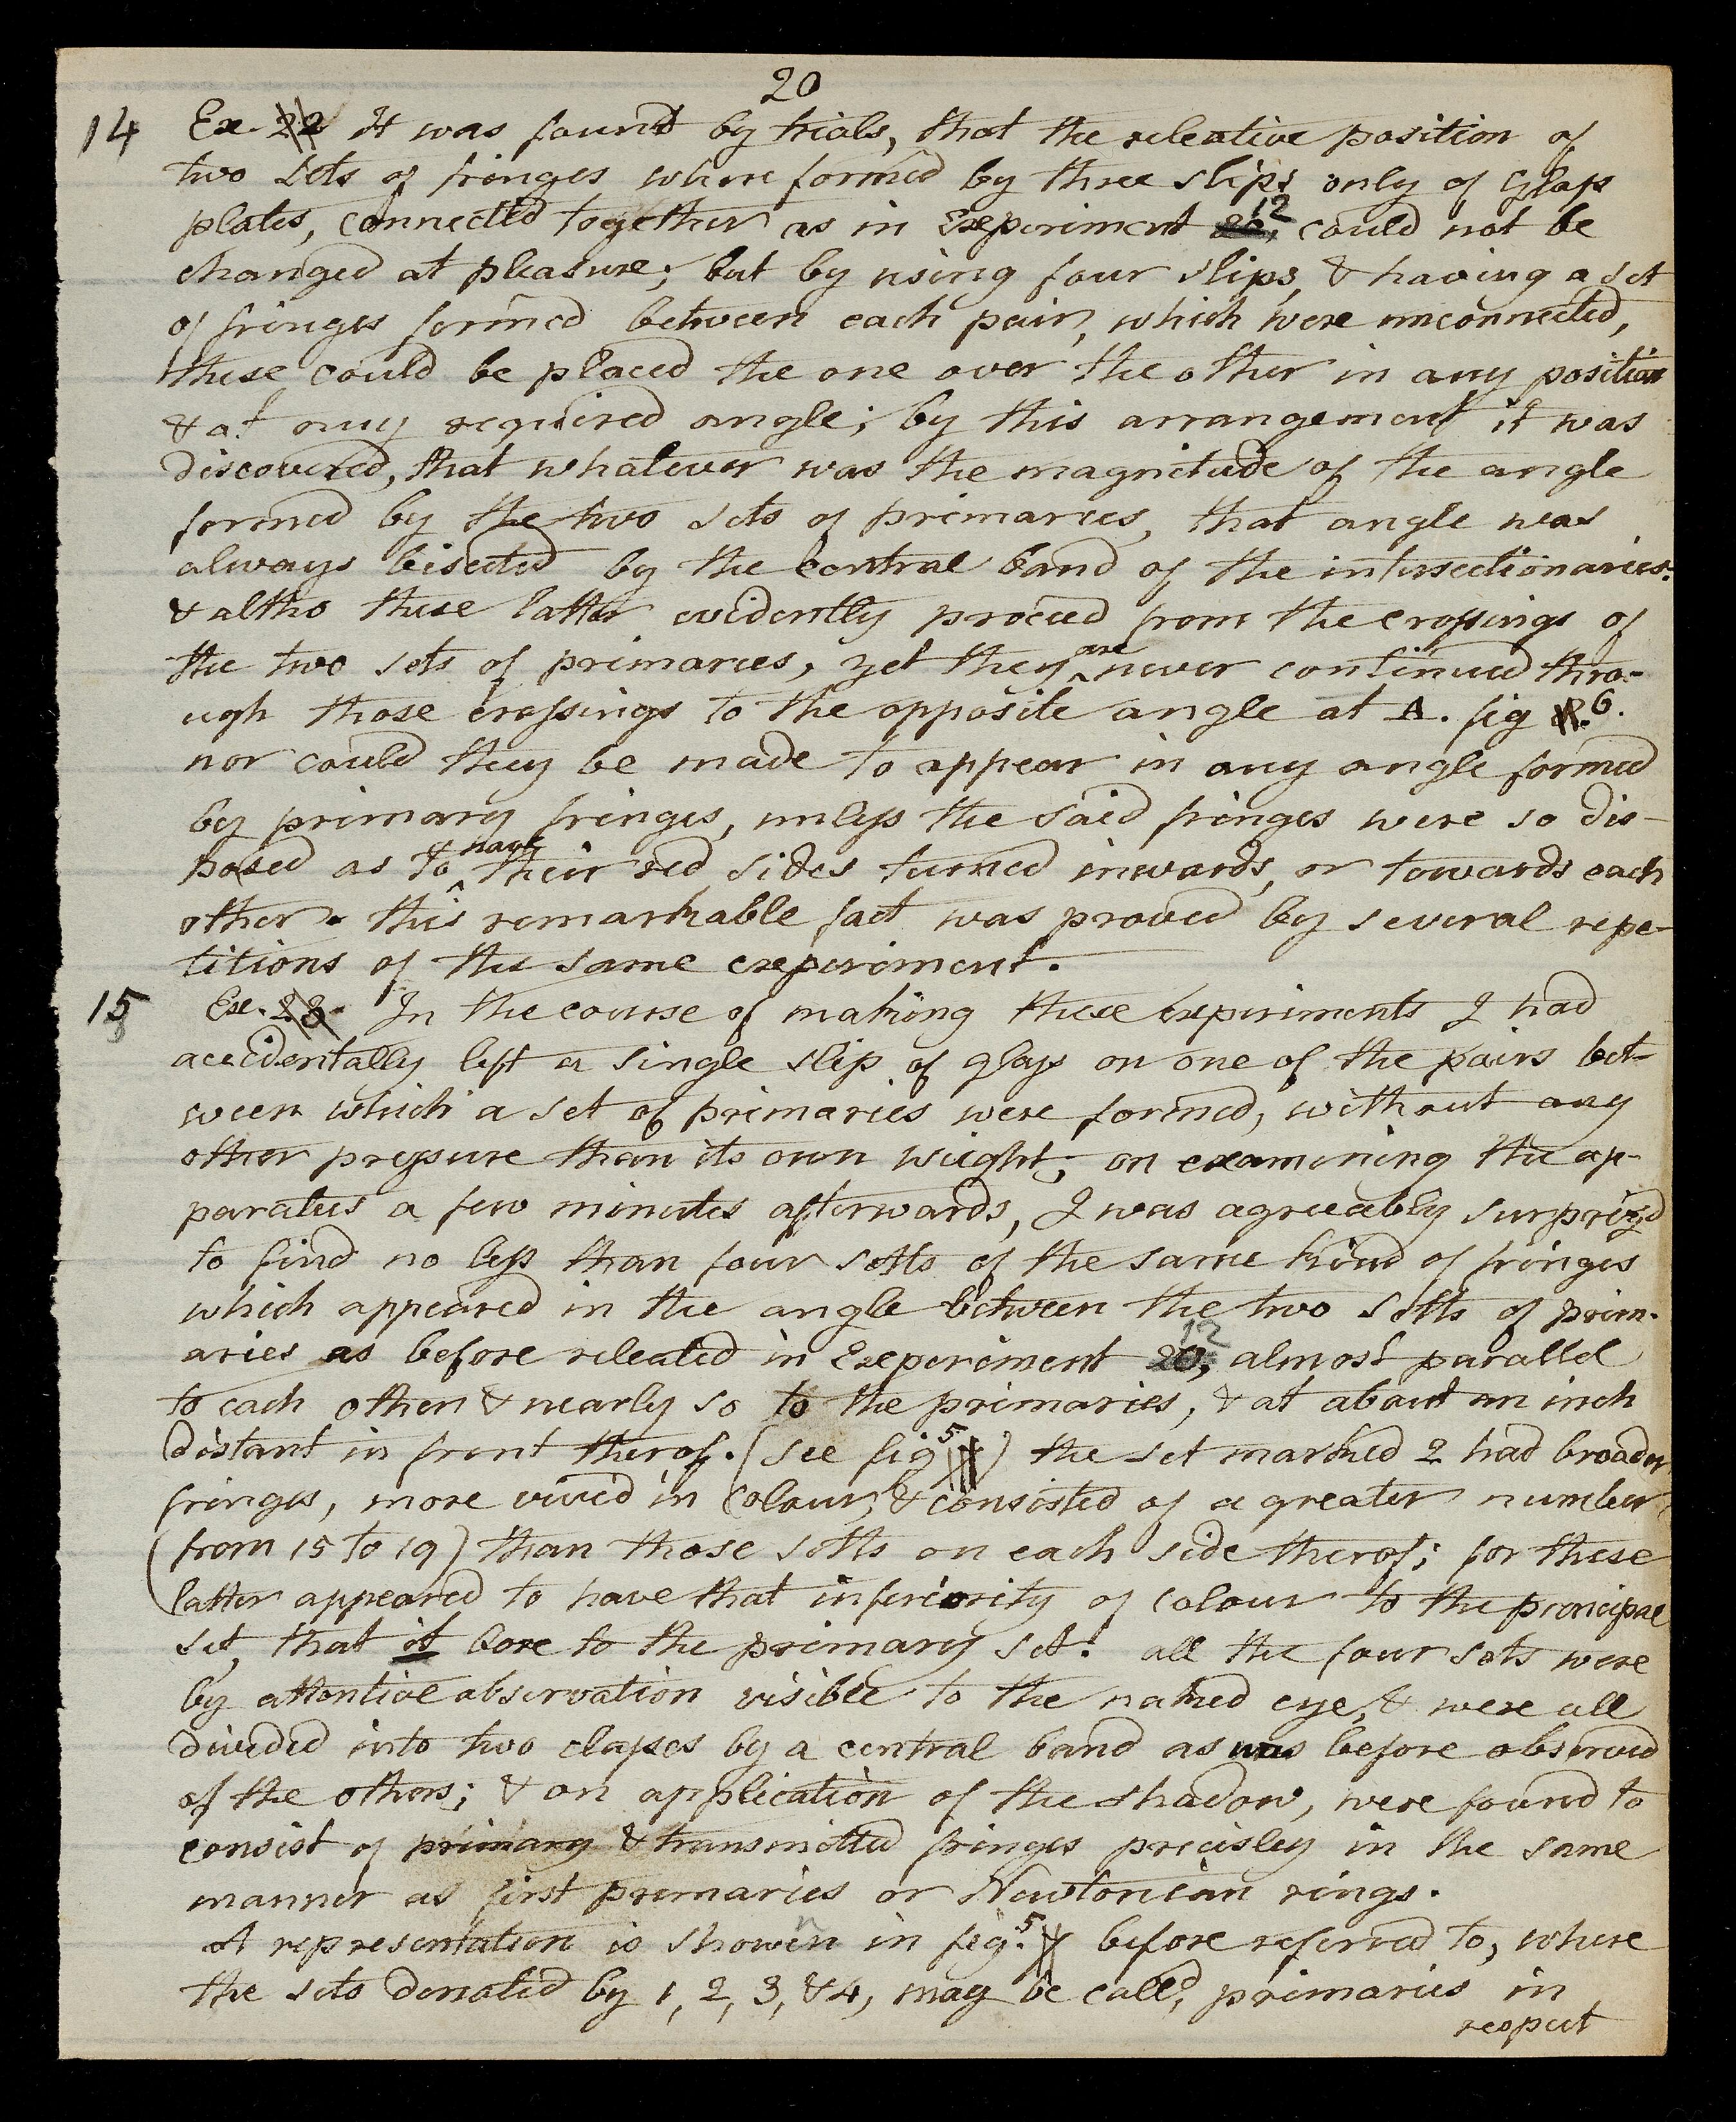 20
14 Ex. 22 It was found by trials, that the releative position of
two sets of fringes where formed by three slips only of Glass
plates, connected together as in Experiment 20, 12 could not be
changed at pleasure; but by using four slips, & having a set
of fringes formed between each pair, which were unconnected,
these could be placed the one over the other in any position
& at any required angle; by this arrangement it was
discovered, that whatever was the magnitude of the angle
formed by the two sets of primaries, that angle was
always bisected by the central band of the intersectionaries:
& altho these latter evidently proceed from the crossings of
the two sets of primaries, yet they are never continued thro-
ugh those crossings to the opposite angle at A. fig 6.
nor could they be made to appear in any angle formed
by primary fringes, unless the said fringes were so dis-
posed as to have their red sides turned inwards, or towards each
other. this remarkable fact was proved by several repe-
titions of the same experiment.
15 Ex. 23 In the course of making these experiments I had
accidentally left a single slip of glass on one of the pairs bet-
ween which a set of primaries were formed, without any
other pressure than its own wieght; on examining the ap-
paratus a few minutes afterwards, I was agreeably surprized
to find no less than four setts of the same kind of fringes
which appeared in the angle between the two setts of prim-
aries as before releated in Experiment 20, 12 almost parallel
to each other & nearly so to the primaries, & at about an inch
distant in front therof. (see fig 5) the set marked 2 had broader
fringes, more vivid in Colour, & consisted of a greater number
(from 15 to 19) than those setts on each side therof; for these
latter appeared to have that inferiority of colour to the principal
set, that it bore to the primary set: all the four sets were
by attentive observation visible to the naked eye, & were all
divided into two classes by a central band as was before observed
of the others; & on application of the shadow, were found to
consist of primary & transmitted fringes precisley in the same
manner as first premaries or Newtonian rings.
A representation is shown in fig. 5 before referred to, where
the sets denoted by 1, 2, 3, & 4, may be calld, primaries in
respect